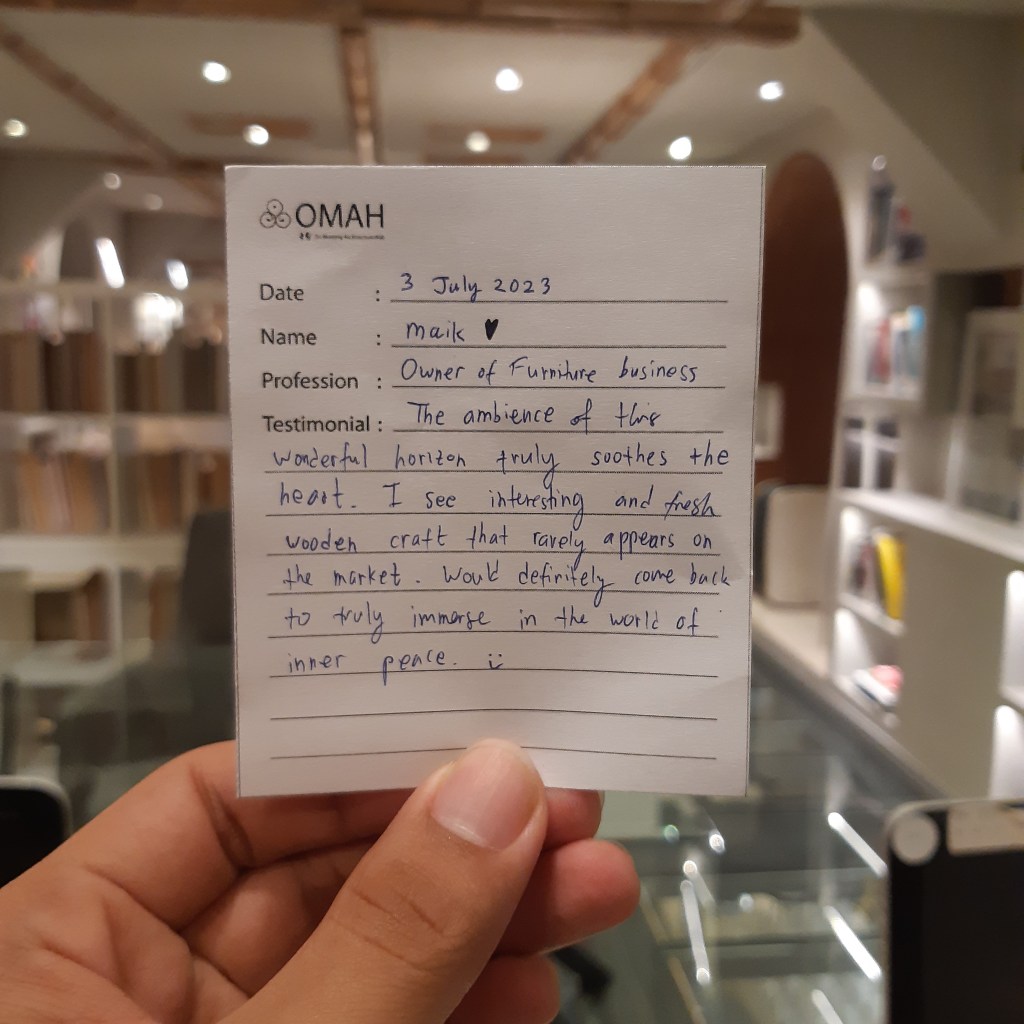 OMAH
Date : 3 July 2023
Name : Maik ♥
Profession : Owner of Furniture business
Testimonial : The ambience of this
wonderful horizon truly soothes the
heart. I see interesting and fresh
wooden craft that rarely appears on
the market. Would definitely come back
to truly immerse in the world of
inner peace. :)